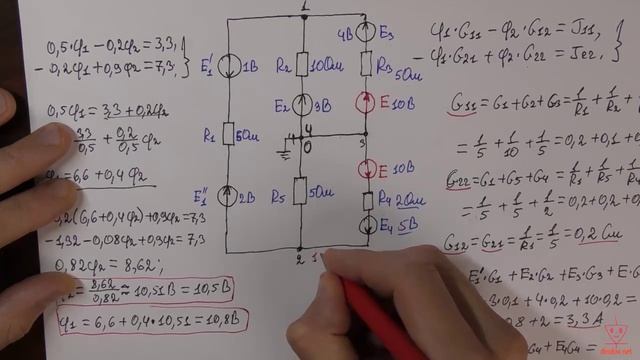 0,5·φ1 − 0,2φ2 = 3,3,
− 0,2φ1 + 0,9φ2 = 7,3,
0,5φ1 = 3,3 + 0,2φ2
0,2/0,5 φ2
φ1 = 6,6 + 0,4φ2
0,2(6,6 + 0,4φ2) + 0,9φ2 = 7,3
−1,32 − 0,08φ2 + 0,9φ2 = 7,3
0,82φ2 = 8,62;
= 8,62/0,82 ≈ 10,51В = 10,5В
φ1 = 6,6 + 0,4·10,51 = 10,8В
1
E1' 1В
R2 10Ом
4В E3
R3 5Ом
E2 9В
E 10В
R1 5Ом
4 4
0
3
E 10В
E1'' 2В
R5 5Ом
R4 2Ом
E4 5В
2 1
φ1·G11 − φ2·G12 = J11,
− φ1·G21 + φ2·G22 = J22,
G11 = G1 + G2 + G3 = 1/R1 + 1/R2 +
= 1/5 + 1/10 + 1/5 = 0,2 + 0,1 + 0
G22 = G1 + G5 + G4 = 1/R1 + 1/R5 +
= 1/5 + 1/5 + 1/2 = 0,2 + 0,2 +
G12 = G21 = 1/R1 = 1/5 = 0,2 См
E1'·G1 + E2·G2 + E3·G3 + E·G
·0,1 + 4·0,2 + 10·0,2 =
08 + 2 = 3,3А
+ E4G4 =